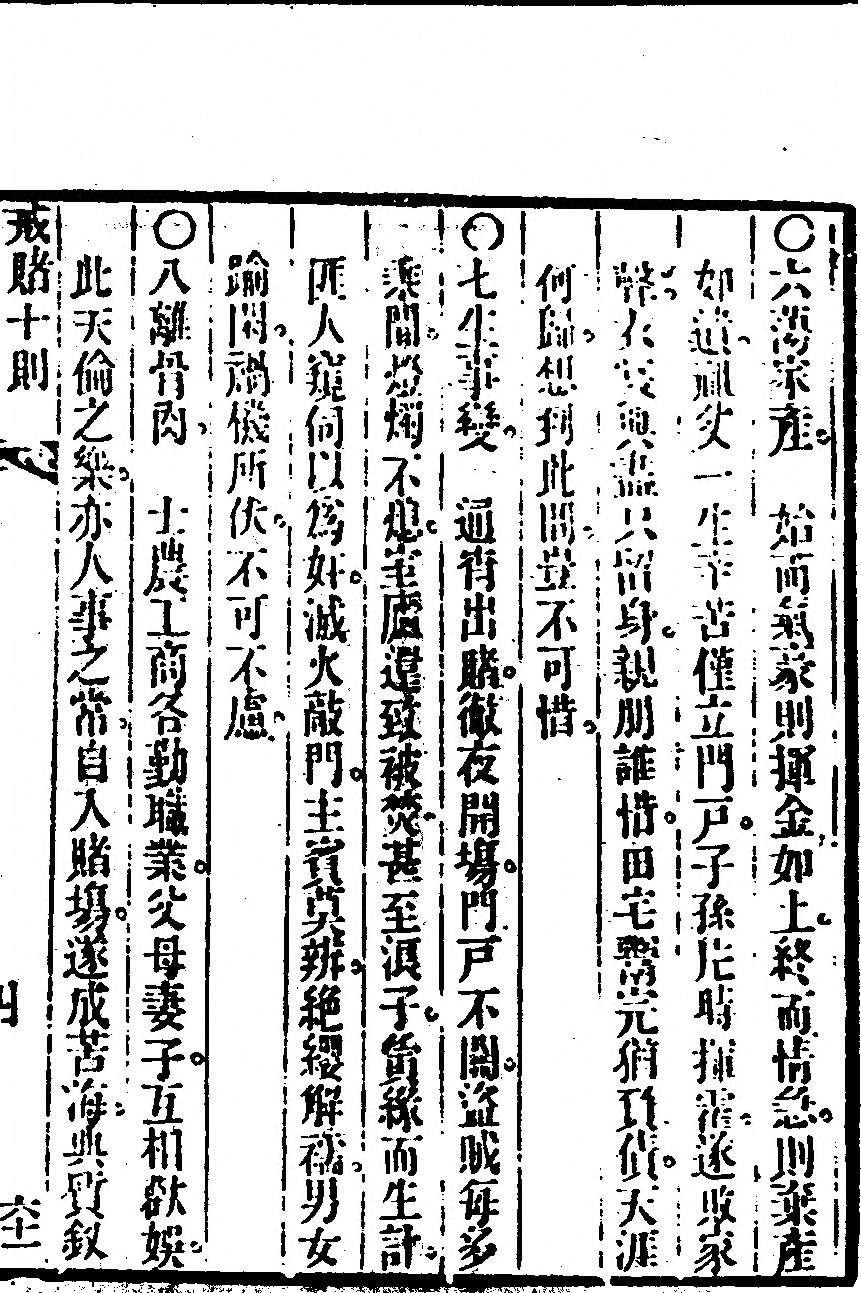 〇六蕩家產　始而氣豪則揮金如土終而情急則棄產
如遺祖父一生辛苦僅立門戶子孫片時揮霍遂敗家
聲衣衫典盡只留身親朋誰惜田宅鬻完猶負債天涯
何歸想到此間豈不可惜
〇七生事變　通宵出賭徹夜開場門戶不關盜賊每多
乘間燈燭不熄室廬遑致被焚甚至浪子夤緣而生計
匪人窺伺以爲奸滅火敲門主賓莫辨絕纓解襦男女
踰閑禍機所伏不可不慮
〇八離骨肉　士農工商各勤職業父母妻子互相歡娛
此天倫之樂亦人事之常自入賭場遂成苦海典質釵
戒賭十則
四
六十一